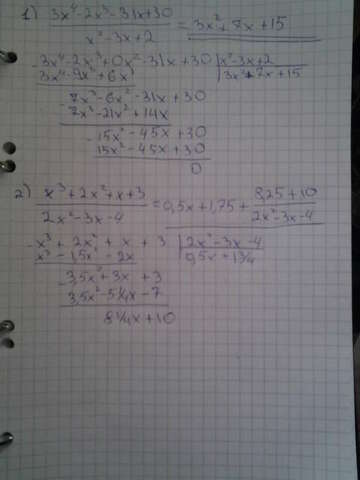 1) 3x⁴-2x³-31x+30 / x²-3x+2 = 3x²+7x+15
-3x⁴-2x³+0x²-31x+30 | x²-3x+2
3x⁴-9x³+6x² | 3x²+7x+15
-7x³-6x²-31x+30
7x³-21x²+14x
-15x²-45x+30
15x²-45x+30
0
2) x³+2x²+x+3 / 2x²-3x-4 = 0,5x+1,75+ 8,25+10 / 2x²-3x-4
-x³+2x²+x+3 | 2x²-3x-4
x³-1,5x²-2x | 0,5x+1¾
-3,5x²+3x+3
3,5x²-5¼x-7
8¼x+10